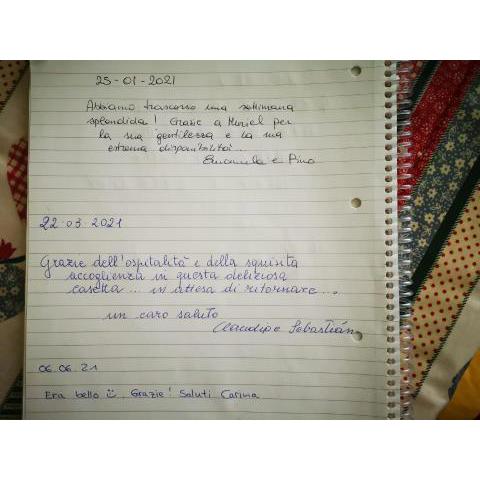 25-01-2021
Abbiamo trascorso una settimana
splendida! Grazie a Muriel per
la sua gentilezza e la sua
estrema disponibilità..
Emanuela e Pino
22.03.2021
Grazie dell'ospitalità e della squisita
accoglienza in questa deliziosa
casetta... in attesa di ritornare...
un caro saluto
Claudio e Sebastián
06.06.21
Era bello ☺, Grazie! Saluti Carina